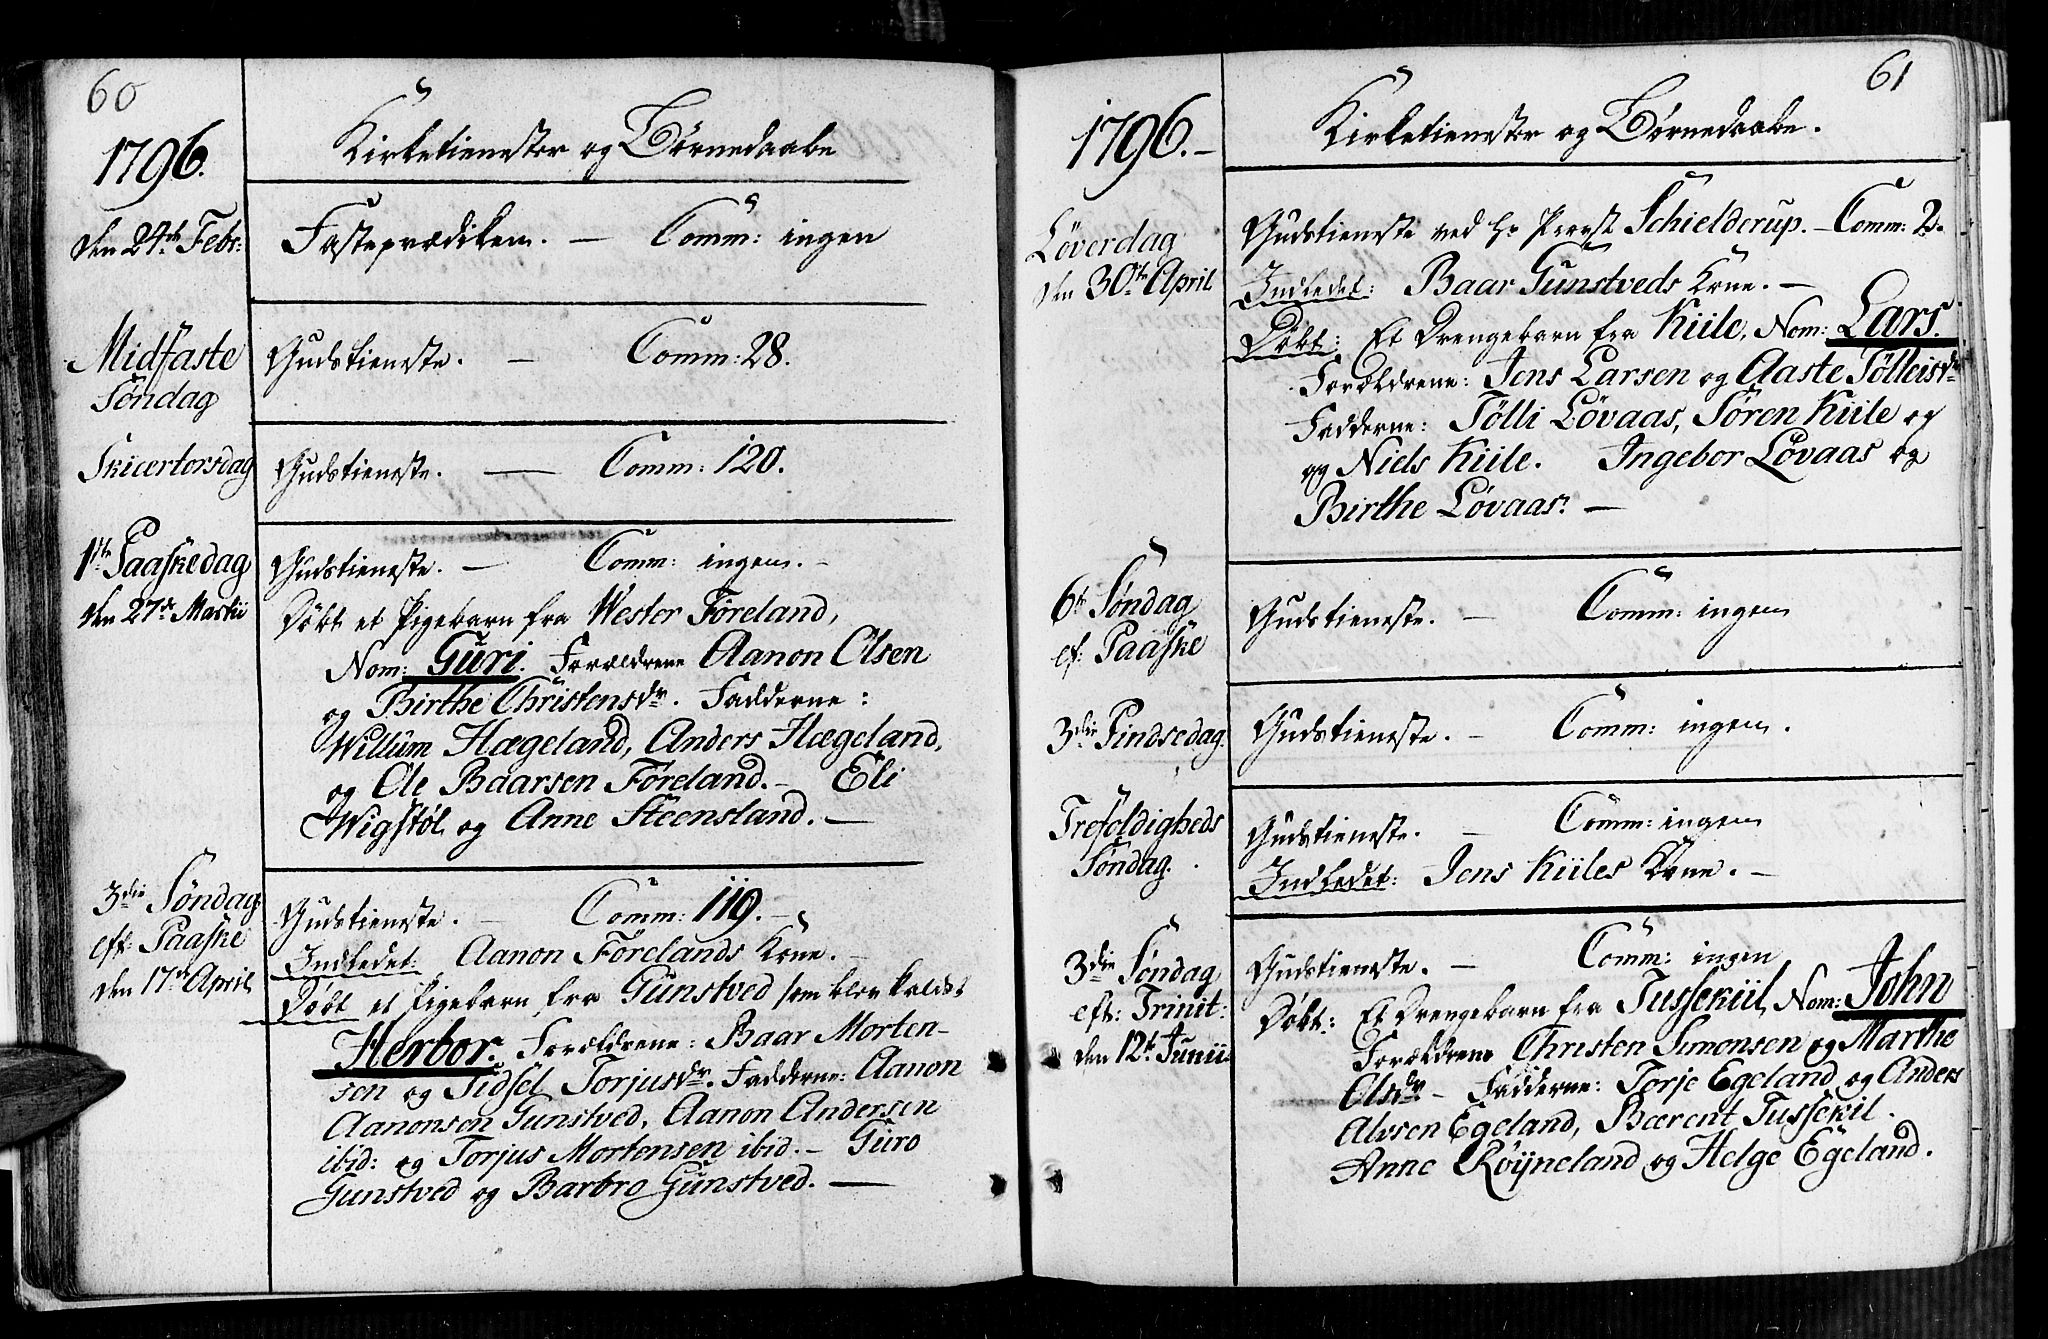 60
1796.
Kirketienester og Børnedaabe
den 24de Febr:
Fasteprædiken. — Comm: ingen
Midfaste
Søndag
Gudstieneste. — Comm: 28.
Skiertorsdag
Gudstieneste. — Comm: 120.
1te Paaskedag
den 27de Martii
Gudstieneste. — Comm: ingen. -
Døbt et Pigebarn fra Wester Føreland,
Nom: Guri. Forældrene Aanon Olsen
og Birthe Christensdr. Fadderne:
Willum Hægeland, Anders Hægeland,
og Ole Baarsen Føreland. - Eli
Wigstøl, og Anne Steensland. —
3die Søndag
eft: Paaske
den 17de April
Gudstieneste. — Comm: 119. -
Indledet: Aanon Førelands Kone. -
Døbt et Pigebarn fra Gunstved som blev kaldet
Herbor. Forældrene: Baar Morten-
sen og Sidsel Torjusdr. Fadderne: Aanon
Aanonsen Gunstved, Aanon Andersen
ibid: og Torjus Mortensen ibid. - Guro
Gunstved og Barbro Gunstved. —
61
1796. -
Kirketienester og Børnedaabe.
Løverdag
den 30te April
Gudstieneste ved Hr Provst Schielderup. - Comm: 2.
Indledet: Baar Gunstveds Kone. -
Døbt: Et Drengebarn fra Kiile, Nom: Lars.
Forældrene: Jens Larsen og Aaste Tølleisdr
Fadderne: Tølli Løvaas, Søren Kiile og
og Niels Kiile. Ingebor Løvaas og
Birthe Løvaas. —
6te Søndag
ef: Paaske
Gudstieneste. — Comm: ingen
3die Pindsedag.
Gudstieneste. - Comm: ingen.
Trefoldigheds
Søndag.
Gudstieneste. — Comm: ingen
Indledet: Jens Kiiles Kone. -
3die Søndag
eft: Trinit:
den 12te Junii
Gudstieneste. - Comm: ingen
Døbt: Et Drengebarn fra Tussekiil, Nom: John
Forældrene Christen Simonsen og Marthe
Olsdr - Fadderne: Torje Egeland og Anders
Alvsen Egeland, Bærent Tussekil.
Anne Røijneland og Helge Egeland.